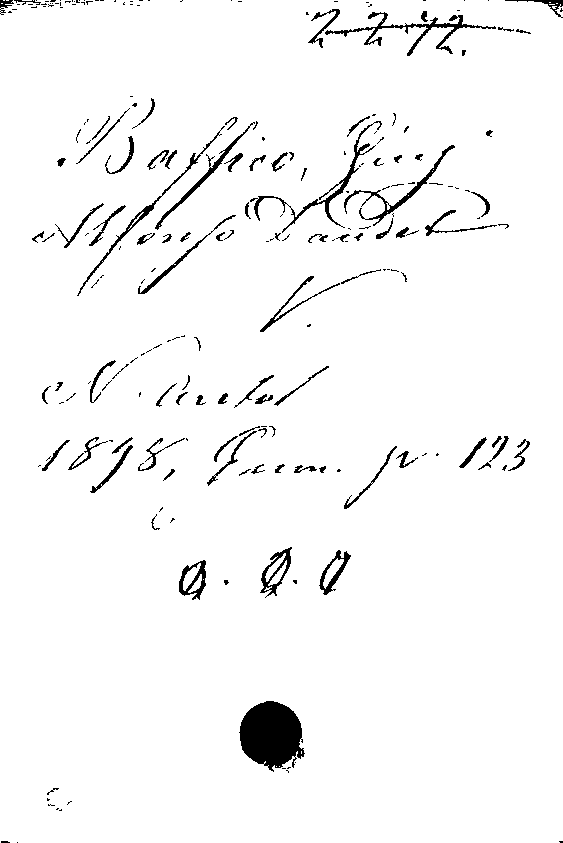 Z. Z. 42.
Baffico, Gius.
Alfonso Daudet
V.
N. Antol
1898, Genn. p. 123
Q. Q. 9